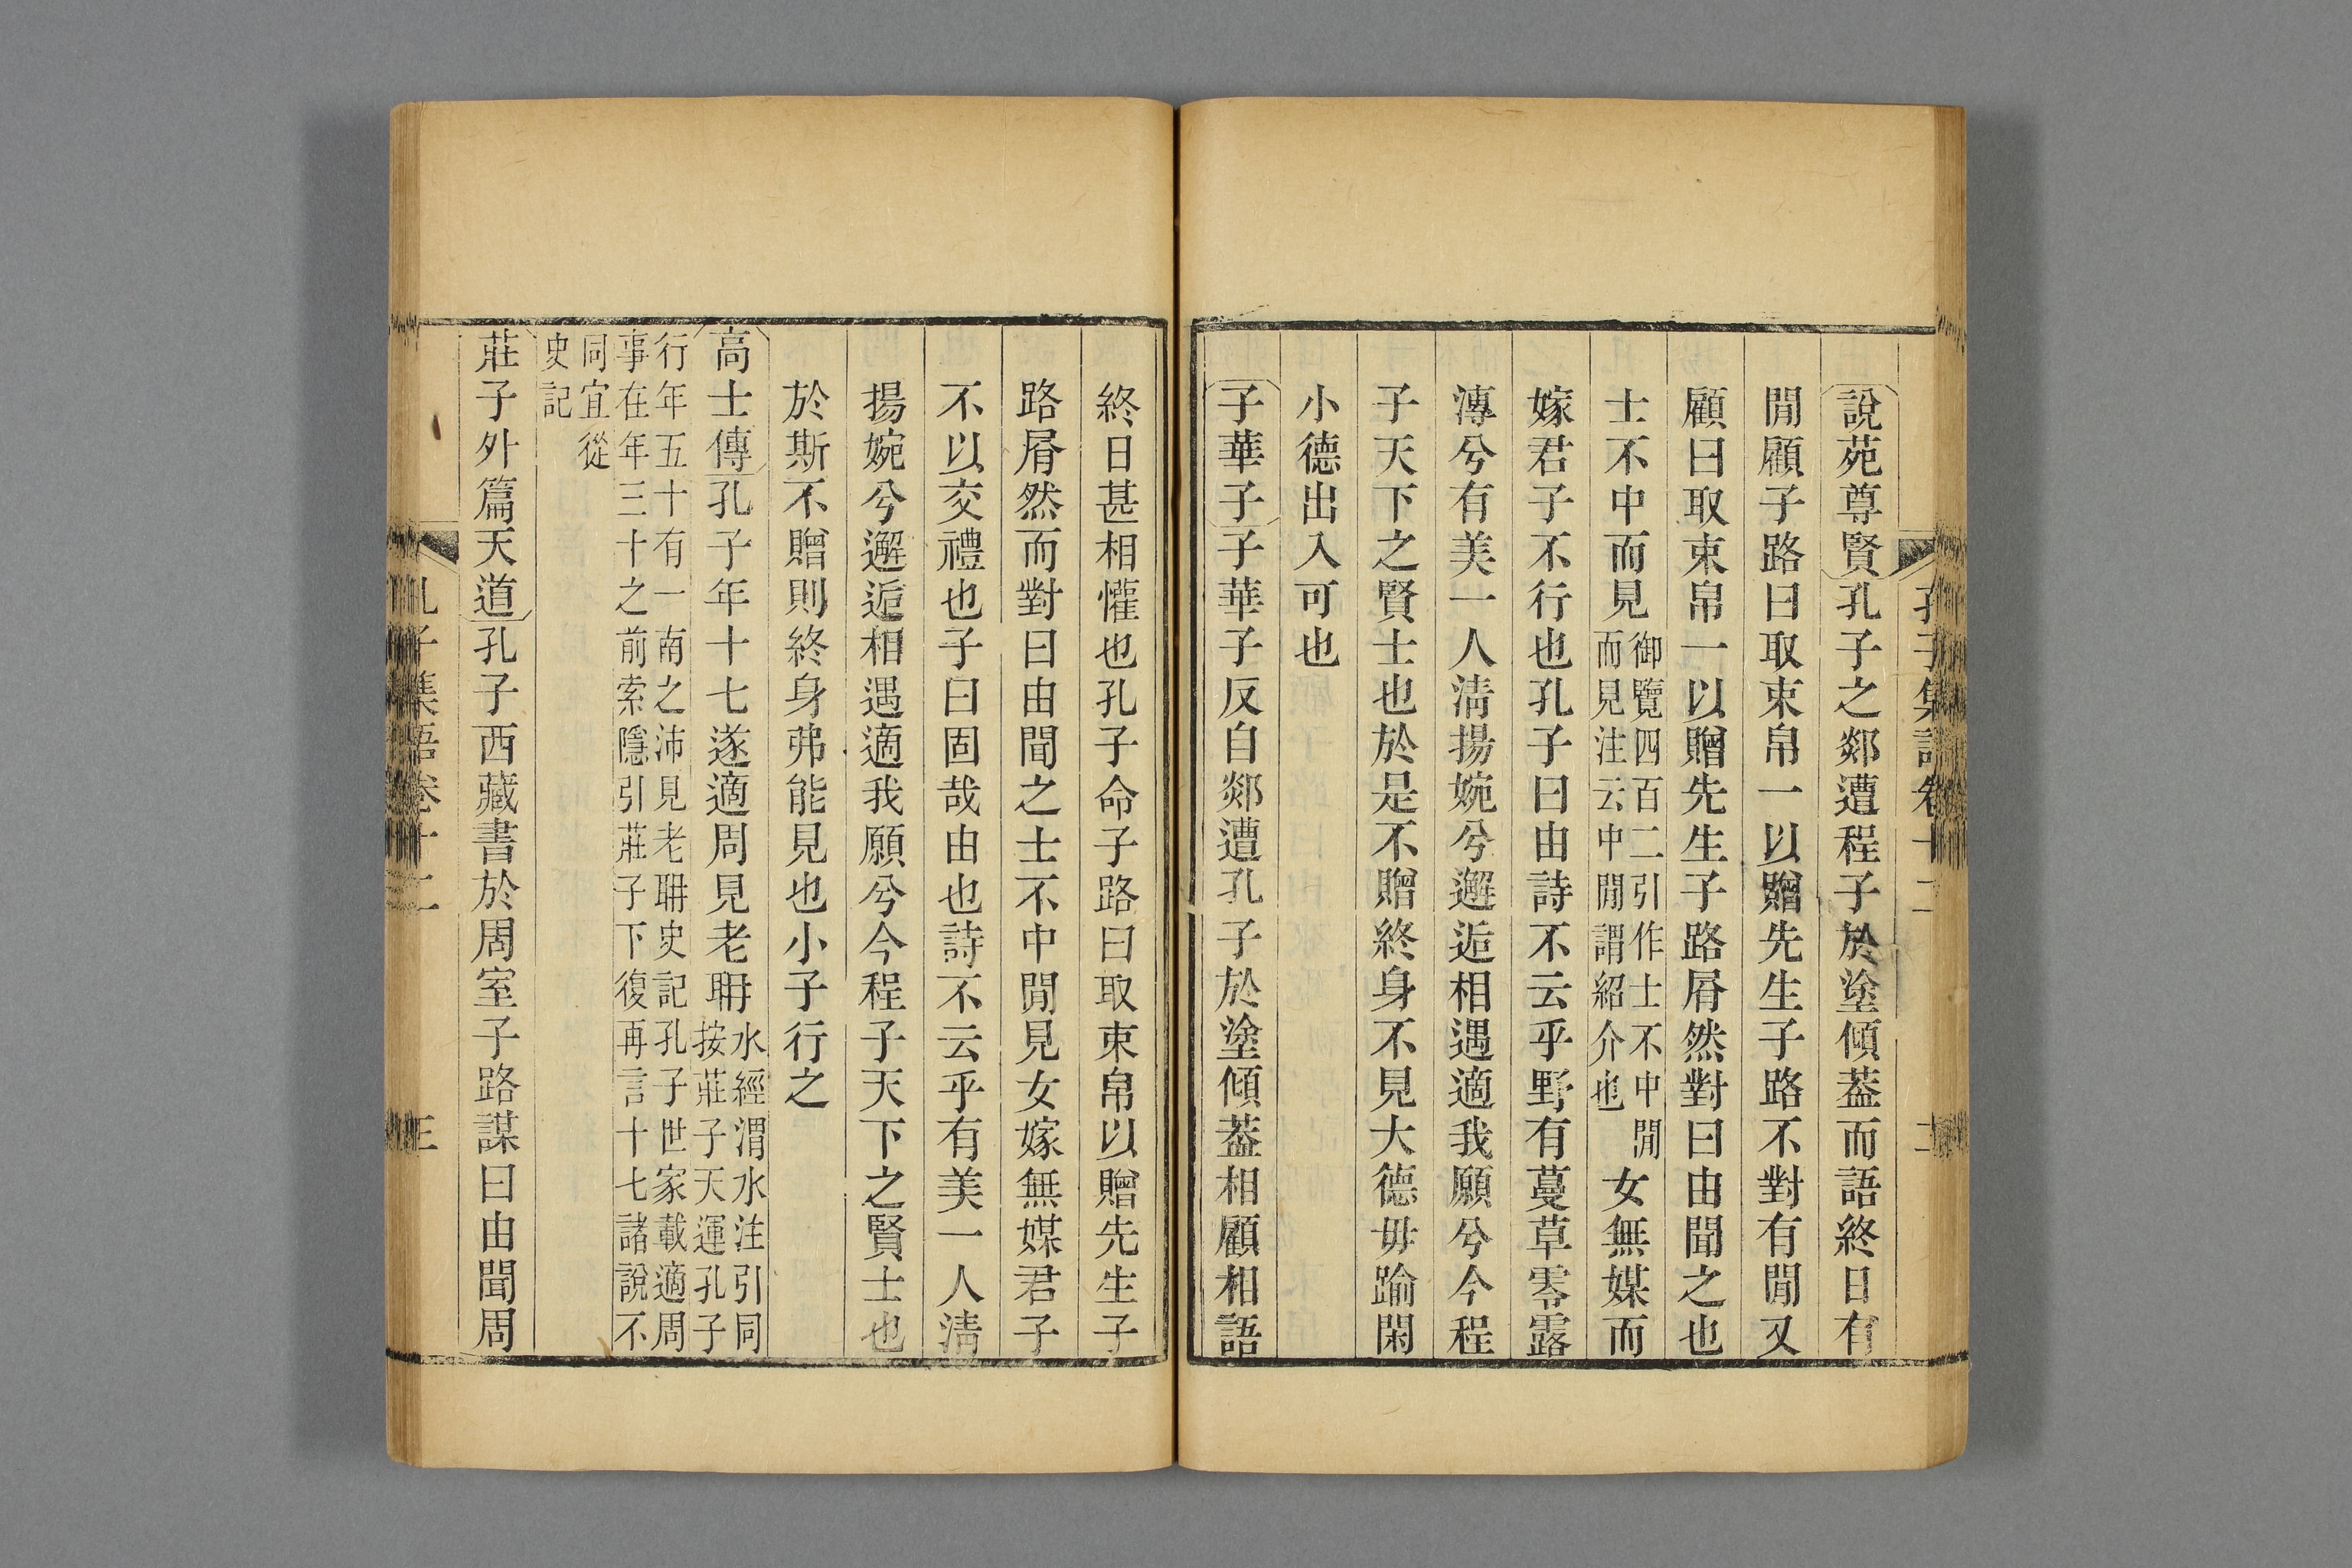 孔子集語卷十二
二
說苑尊賢孔子之郯遭程子於塗傾葢而語終日有
閒顧子路曰取束帛一以贈先生子路不對有閒又
顧曰取束帛一以贈先生子路屑然對曰由聞之也
士不中而見御覽四百二引作士不中閒而見注云中閒謂紹介也女無媒而
嫁君子不行也孔子曰由詩不云乎野有蔓草零露
漙兮有美一人淸揚婉兮邂逅相遇適我願兮今程
子天下之賢士也於是不贈終身不見大德毋踰閑
小德出入可也
子華子子華子反自郯遭孔子於塗傾葢相顧相語
終日甚相懽也孔子命子路曰取束帛以贈先生子
路屑然而對曰由聞之士不中閒見女嫁無媒君子
不以交禮也子曰固哉由也詩不云乎有美一人淸
揚婉兮邂逅相遇適我願兮今程子天下之賢士也
於斯不贈則終身弗能見也小子行之
高士傳孔子年十七遂適周見老聃水經渭水注引同按莊子天運孔子
行年五十有一南之沛見老聃史記孔子世家載適周事在年三十之前索隱引莊子下復再言十七諸說不
同宜從史記
莊子外篇天道孔子西藏書於周室子路謀曰由聞周
孔子集語卷十二
三